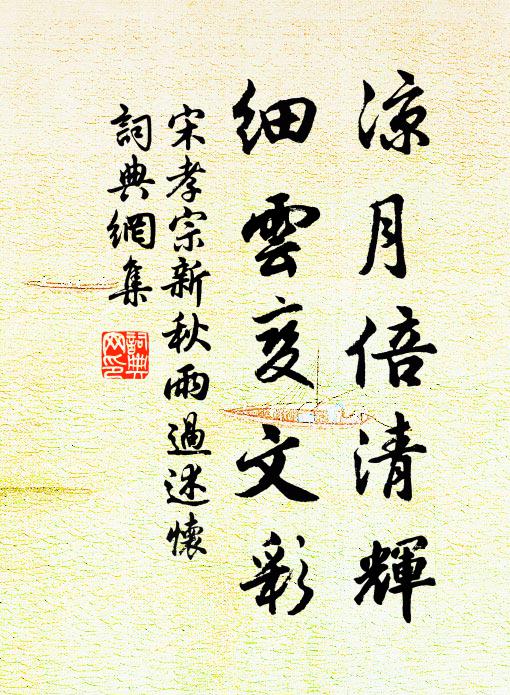 涼月倍清輝
細雲变文彩
宋孝宗新秋雨過述懷
詞典網集
詞典
网印